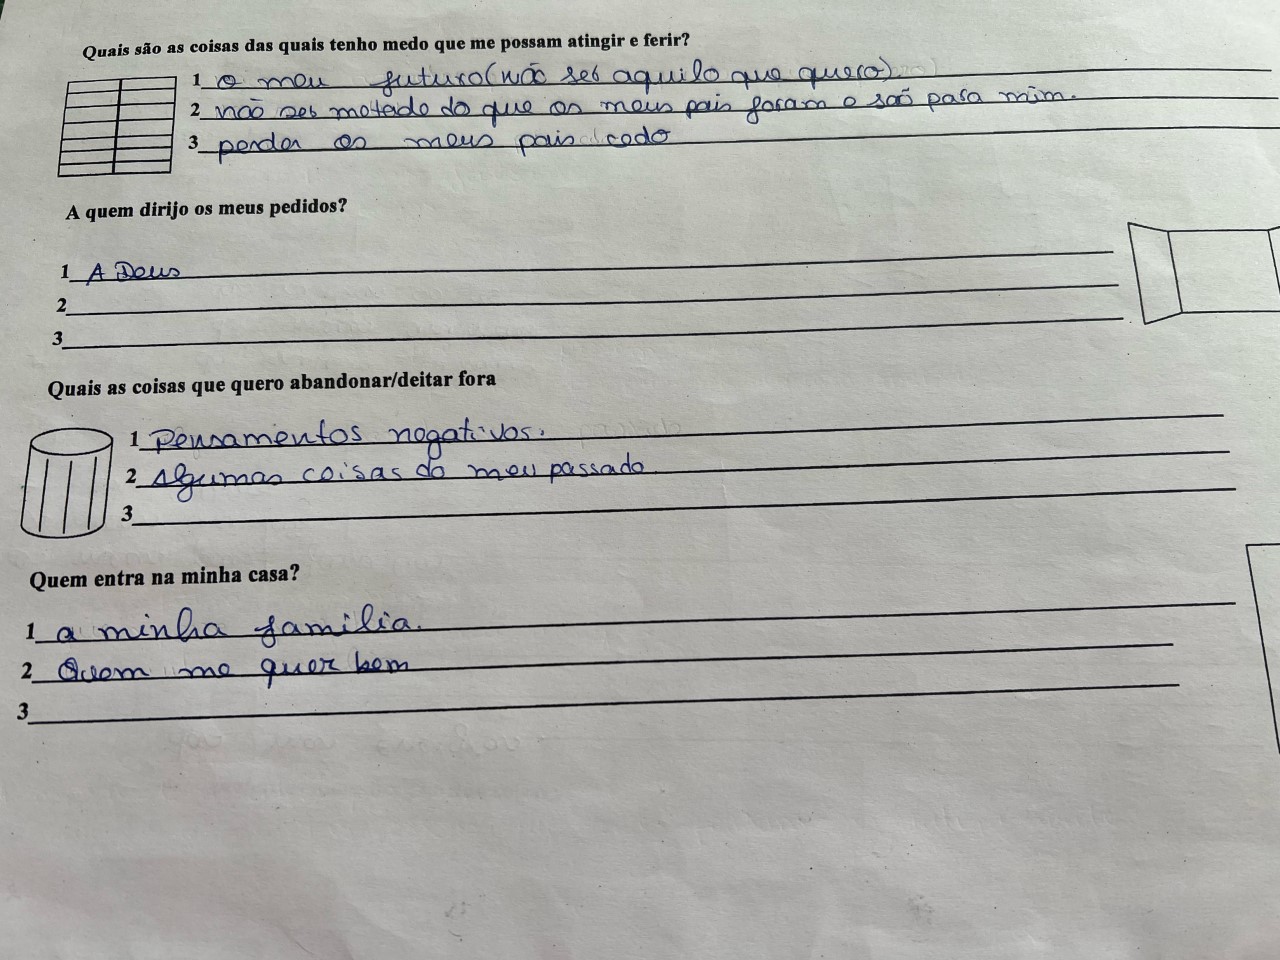 Quais são as coisas das quais tenho medo que me possam atingir e ferir?
1 o meu futuro (não ser aquilo que quero)
2 não ser metade do que os meus pais foram e são para mim.
3 perder os meus pais cedo
A quem dirijo os meus pedidos?
1 A Deus
2
3
Quais as coisas que quero abandonar/deitar fora
1 Pensamentos negativos.
2 Algumas coisas do meu passado
3
Quem entra na minha casa?
1 a minha familia.
2 Quem me quer bem
3